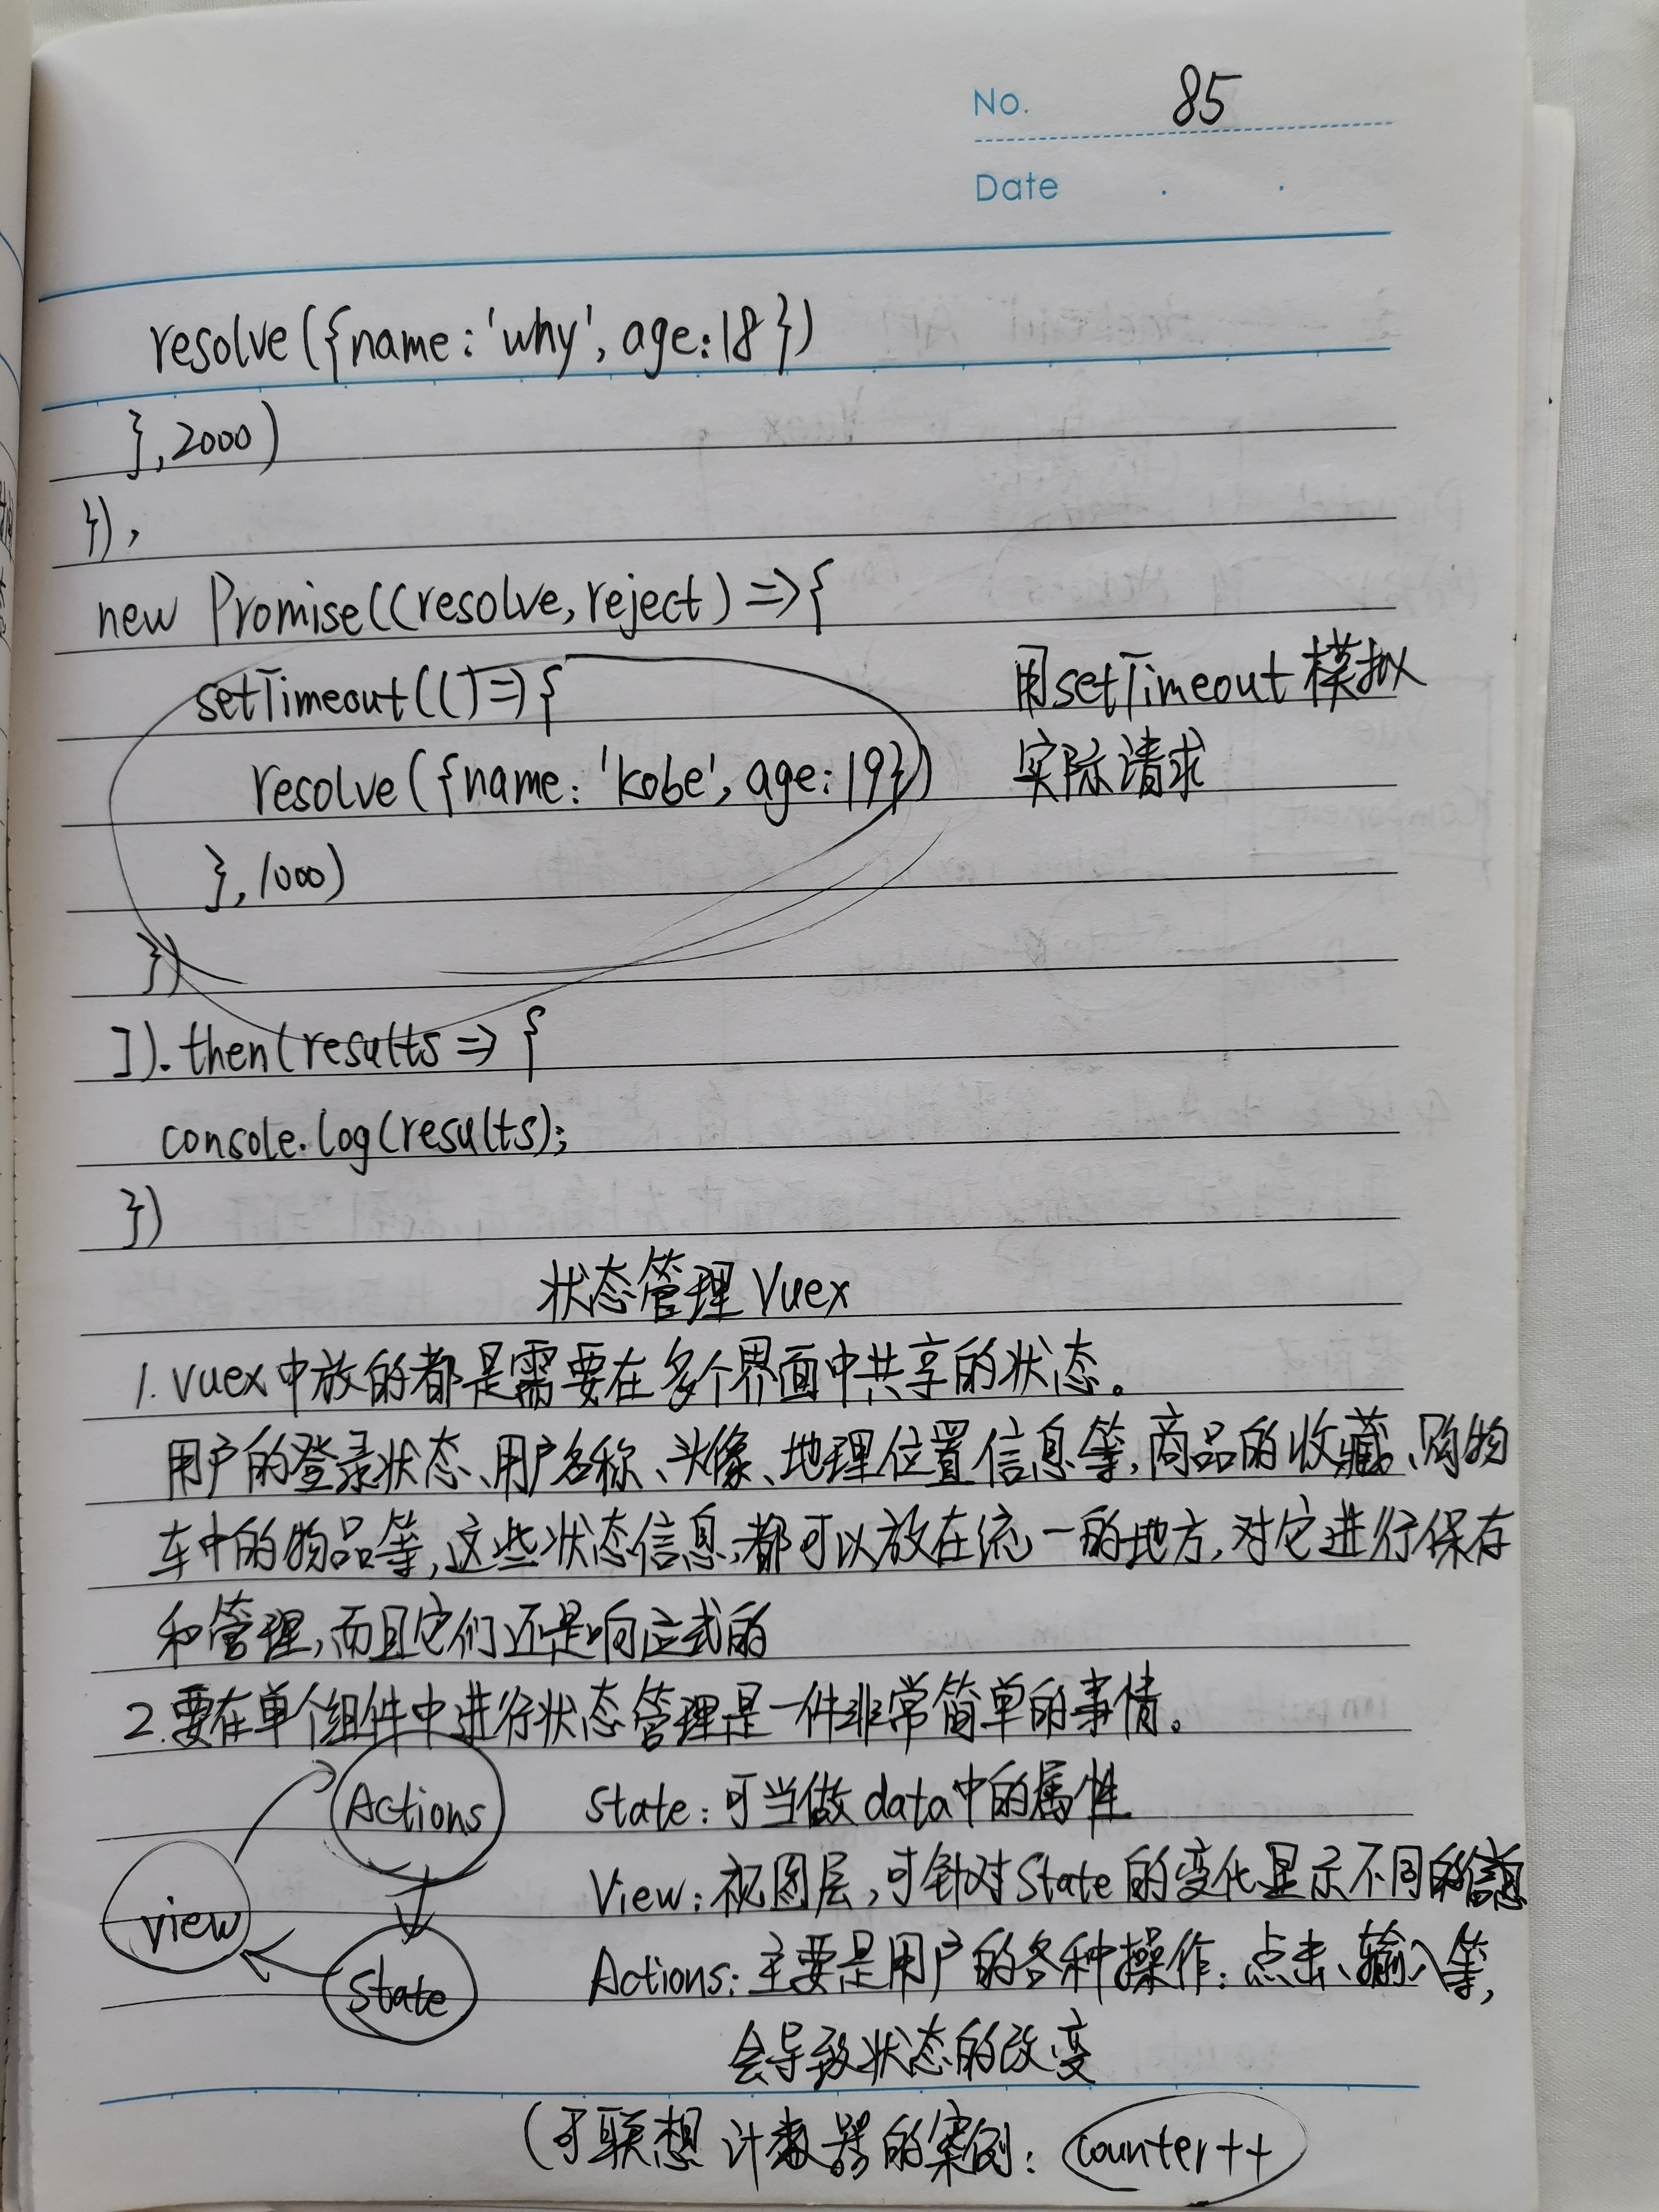 No. 85
Date
resolve({name:'why', age:18})
},2000)
}),
new Promise((resolve, reject) => {
setTimeout(() => {
用setTimeout模拟
resolve({name: 'kobe', age:19})
实际请求
},1000)
})
]).then(results => {
console.log(results);
})
状态管理Vuex
1.vuex中放的都是需要在多个界面中共享的状态。
用户的登录状态、用户名称、头像、地理位置信息等,商品的收藏、购物
车中的物品等,这些状态信息,都可以放在统一的地方,对它进行保存
和管理,而且它们还是响应式的
2.要在单个组件中进行状态管理是一件非常简单的事情。
Actions
State:可当做data中的属性
View:视图层,可针对State的变化显示不同的信息
view
Actions:主要是用户的各种操作:点击、输入等,
State
会导致状态的改变
(可联想计数器的案例: counter++